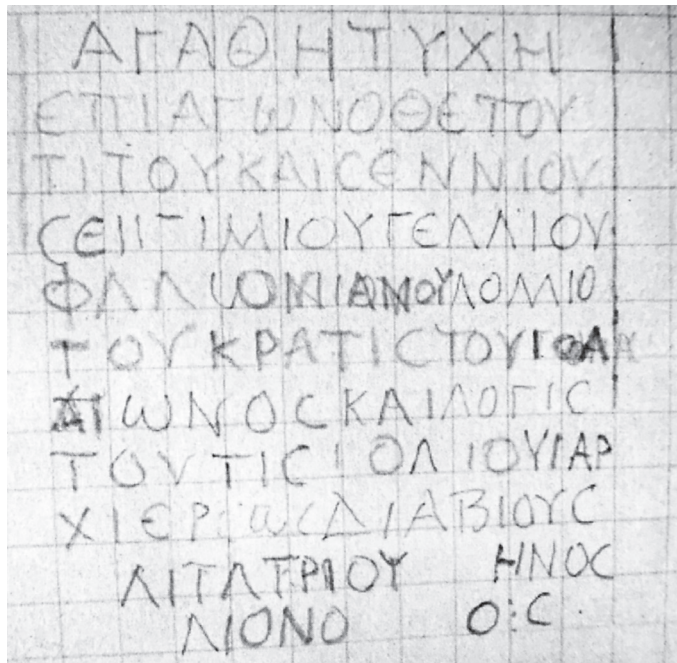 ΑΓΑΘΗΤΥΧΗ
ΕΠΙΑΓΩΝΟΘΕΤΟΥ
ΤΙΤΟΥΚΑΙϹΕΝΝΙΟΥ
ϹΕΠΤΙΜΙΟΥΓΕΛΛΙΟΥ
ΦΛΛΩΝΙΑΝΟΥΛΟΛΛΙΟ
ΤΟΥΚΡΑΤΙϹΤΟΥ
ΩΝΟϹΚΑΙΛΟΓΙϹ
ΤΟΥΤΙϹΙΟΛΙΟΥΙΑΡ
ΧΙΕΡΩϹΔΙΑΒΙΟΥϹ
ΛΙΤΛΤΡΙΟΥ ΗΝΟϹ
ΛΙΟΝΟ Ο:Ϲ